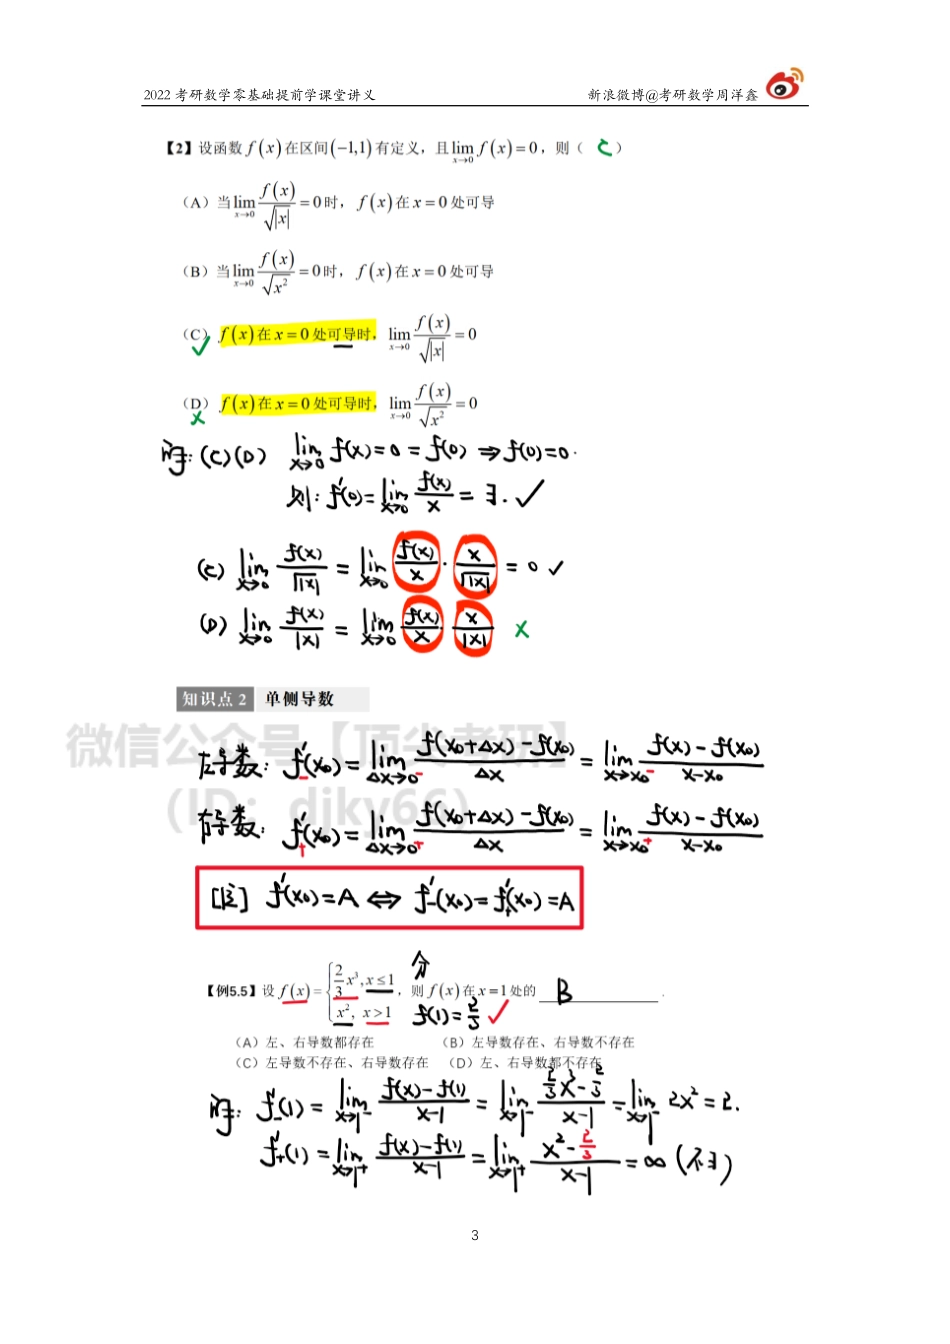 2022 考研数学零基础提前学课堂讲义 新浪微博@考研数学周洋鑫
【2】设函数 f(x) 在区间 (−1,1) 有定义，且 lim_{x→0} f(x) = 0，则（ C ）
（A）当 lim_{x→0} f(x)/√|x| = 0 时，f(x) 在 x = 0 处可导
（B）当 lim_{x→0} f(x)/√x² = 0 时，f(x) 在 x = 0 处可导
（C）✓ f(x) 在 x = 0 处可导时，lim_{x→0} f(x)/√|x| = 0
（D）× f(x) 在 x = 0 处可导时，lim_{x→0} f(x)/√x² = 0
解: (C)(D) lim_{x→0} f(x) = 0 = f(0) ⇒ f(0) = 0.
则: f′(0) = lim_{x→0} f(x)/x = ∃. ✓
(C) lim_{x→0} f(x)/√|x| = lim_{x→0} f(x)/x · x/√|x| = 0 ✓
(D) lim_{x→0} f(x)/|x| = lim_{x→0} f(x)/x · x/|x| ×
知识点 2 单侧导数
微信公众号【顶尖考研】
(ID: djky66)
左导数: f′₋(x₀) = lim_{Δx→0⁻} (f(x₀+Δx) − f(x₀))/Δx = lim_{x→x₀⁻} (f(x) − f(x₀))/(x − x₀)
右导数: f′₊(x₀) = lim_{Δx→0⁺} (f(x₀+Δx) − f(x₀))/Δx = lim_{x→x₀⁺} (f(x) − f(x₀))/(x − x₀)
[注] f′(x₀) = A ⇔ f′₋(x₀) = f′₊(x₀) = A
分
【例5.5】设 f(x) = { 2/3 x³, x ≤ 1; x², x > 1 ，则 f(x) 在 x = 1 处的 B .
f(1) = 2/3 ✓
（A）左、右导数都存在 （B）左导数存在、右导数不存在
（C）左导数不存在、右导数存在 （D）左、右导数都不存在
解: f′₋(1) = lim_{x→1⁻} (f(x) − f(1))/(x − 1) = lim_{x→1⁻} (2/3 x³ − 2/3)/(x − 1) = lim_{x→1⁻} 2x² = 2.
f′₊(1) = lim_{x→1⁺} (f(x) − f(1))/(x − 1) = lim_{x→1⁺} (x² − 2/3)/(x − 1) = ∞ (不∃)
3